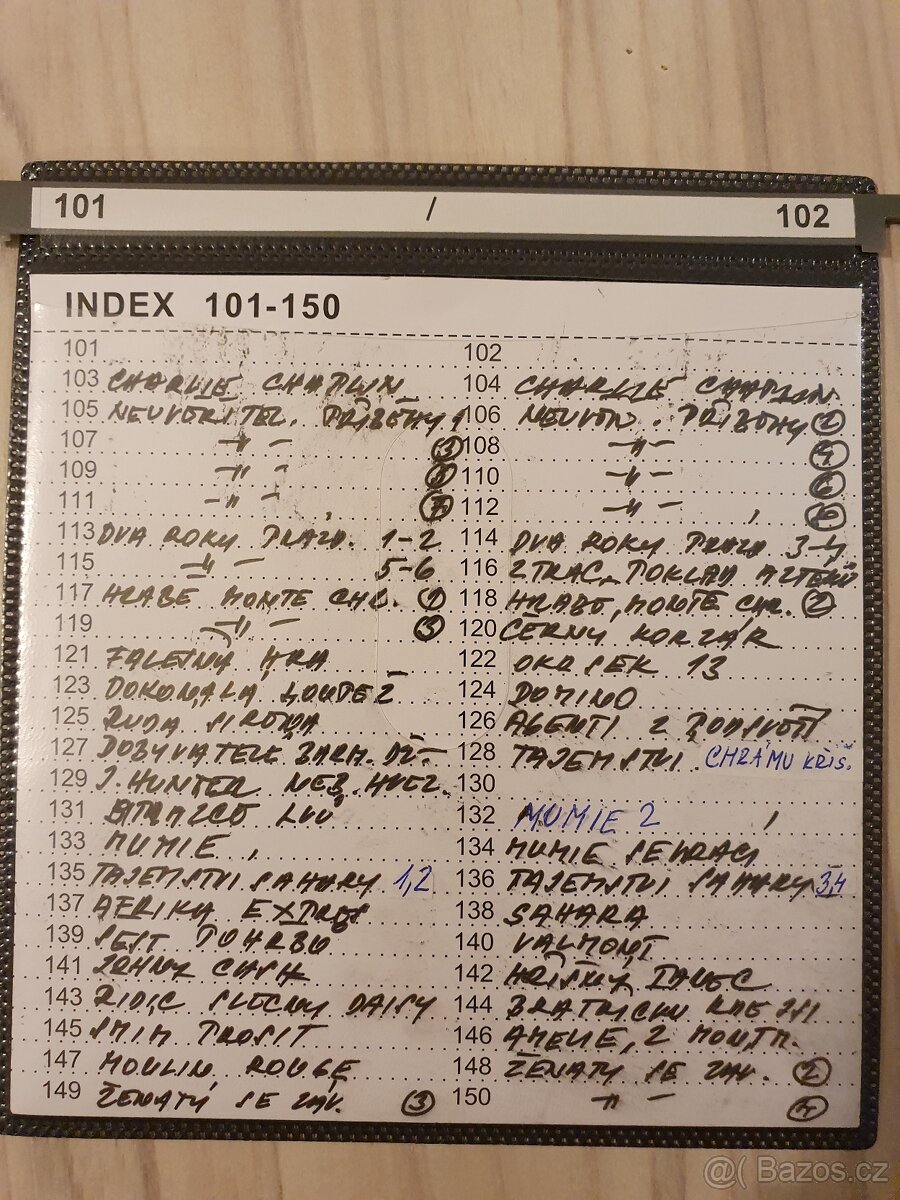 101 / 102
INDEX 101-150
101 102
103 CHARLIE CHAPLIN 104 CHARLIE CHAPLIN
105 NEUVĚŘITEL. PŘÍBĚHY 1 106 NEUVĚŘ. PŘÍBĚHY 2
107 –"– 3 108 –"– 4
109 –"– 5 110 –"– 6
111 –"– 7 112 –"–
113 DVA ROKY PRÁZD. 1-2 114 DVA ROKY PRÁZD 3-4
115 –"– 5-6 116 ZTRAC. POKLAD AZTÉKŮ
117 HRABĚ MONTE CHR. 1 118 HRABĚ MONTE CHR. 2
119 –"– 3 120 ČERNÝ KORZÁR
121 FALEŠNÁ HRA 122 OKRSEK 13
123 DOKONALÁ LOUPEŽ 124 DOMINO
125 RUDÁ SIROTNA 126 AGENTI Z PODSVĚTÍ
127 DOBYVATELÉ ZTRAC. 128 TAJEMSTVÍ CHRÁMU KŘIŠ.
129 J. HUNTER NEB. HVĚZ. 130
131 STRÁŽCE LVŮ 132 MUMIE 2
133 MUMIE 134 MUMIE SE VRACÍ
135 TAJEMSTVÍ SAHARY 1,2 136 TAJEMSTVÍ SAHARY 3,4
137 AFRIKA EXPRES 138 SAHARA
139 ŠEST POHŘBŮ 140 VALMONT
141 JOHNY CASH 142 HŘÍŠNÝ TANEC
143 ŘIDIČ SLEČNY DAISY 144 BRATŘÍČKU KDE JSI
145 SMÍM PROSIT 146 AMELIE, Z MONTM.
147 MOULIN ROUGE 148 ŽENATÝ SE ZÁV. 2
149 ŽENATÝ SE ZÁV. 3 150 –"– 4
@( Bazos.cz